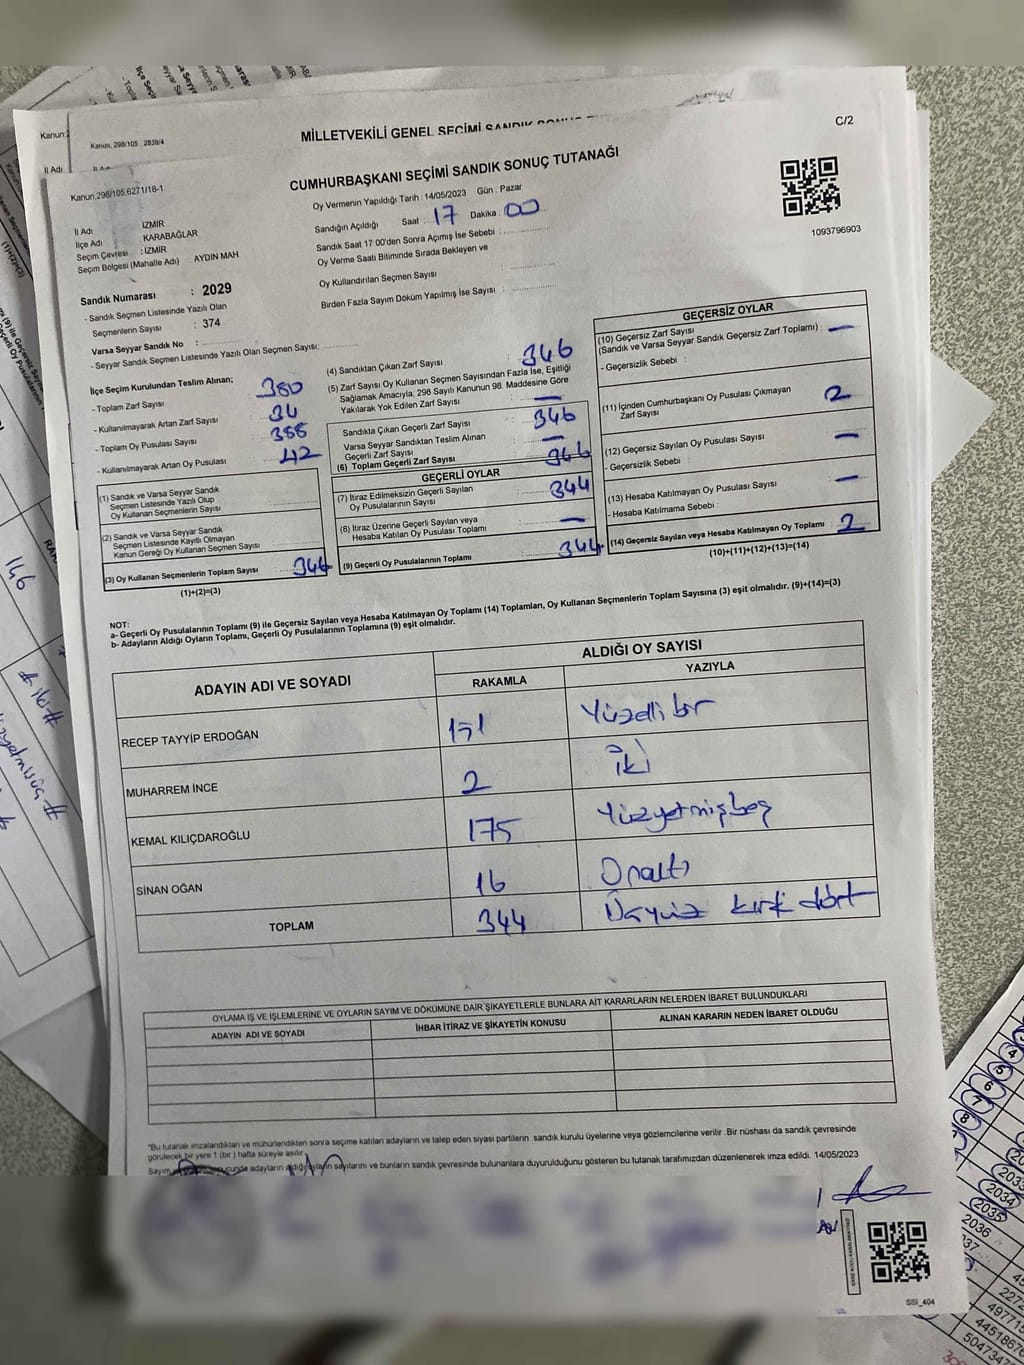 MİLLETVEKİLİ GENEL SEÇİMİ SANDIK
C/2
Kanun, 298/105 2839/4
İl Adı
CUMHURBAŞKANI SEÇİMİ SANDIK SONUÇ TUTANAĞI
Kanun:298/105,6271/18-1
Oy Vermenin Yapıldığı Tarih : 14/05/2023 Gün : Pazar
Sandığın Açıldığı Saat 17 Dakika : 00
Sandık Saat 17:00'den Sonra Açımış İse Sebebi :
Oy Verme Saati Bitiminde Sırada Bekleyen ve
Oy Kullandırılan Seçmen Sayısı :
Birden Fazla Sayım Döküm Yapılmış İse Sayısı :
1093796903
İl Adı : İZMİR
İlçe Adı : KARABAĞLAR
Seçim Çevresi : İZMİR
Seçim Bölgesi (Mahalle Adı) AYDIN MAH
Sandık Numarası : 2029
- Sandık Seçmen Listesinde Yazılı Olan
Seçmenlerin Sayısı : 374
Varsa Seyyar Sandık No :
- Seyyar Sandık Seçmen Listesinde Yazılı Olan Seçmen Sayısı:
İlçe Seçim Kurulundan Teslim Alınan;
- Toplam Zarf Sayısı : 380
- Kullanılmayarak Artan Zarf Sayısı : 34
- Toplam Oy Pusulası Sayısı : 388
- Kullanılmayarak Artan Oy Pusulası : 42
(1) Sandık ve Varsa Seyyar Sandık
Seçmen Listesinde Yazılı Olup
Oy Kullanan Seçmenlerin Sayısı :
(2) Sandık ve Varsa Seyyar Sandık
Seçmen Listesinde Kayıtlı Olmayan
Kanun Gereği Oy Kullanan Seçmen Sayısı :
(3) Oy Kullanan Seçmenlerin Toplam Sayısı : 346
(1)+(2)=(3)
(4) Sandıktan Çıkan Zarf Sayısı : 346
(5) Zarf Sayısı Oy Kullanan Seçmen Sayısından Fazla İse, Eşitliği
Sağlamak Amacıyla, 298 Sayılı Kanunun 98. Maddesine Göre
Yakılarak Yok Edilen Zarf Sayısı : —
Sandıkta Çıkan Geçerli Zarf Sayısı : 346
Varsa Seyyar Sandıktan Teslim Alınan
Geçerli Zarf Sayısı : —
(6) Toplam Geçerli Zarf Sayısı : 346
GEÇERLİ OYLAR
(7) İtiraz Edilmeksizin Geçerli Sayılan
Oy Pusulalarının Sayısı : 344
(8) İtiraz Üzerine Geçerli Sayılan veya
Hesaba Katılan Oy Pusulası Toplamı : —
(9) Geçerli Oy Pusulalarının Toplamı : 344
GEÇERSİZ OYLAR
(10) Geçersiz Zarf Sayısı
(Sandık ve Varsa Seyyar Sandık Geçersiz Zarf Toplamı) : —
- Geçersizlik Sebebi :
(11) İçinden Cumhurbaşkanı Oy Pusulası Çıkmayan
Zarf Sayısı : 2
(12) Geçersiz Sayılan Oy Pusulası Sayısı : —
- Geçersizlik Sebebi :
(13) Hesaba Katılmayan Oy Pusulası Sayısı : —
- Hesaba Katılmama Sebebi :
(14) Geçersiz Sayılan veya Hesaba Katılmayan Oy Toplamı : 2
(10)+(11)+(12)+(13)=(14)
NOT:
a- Geçerli Oy Pusulalarının Toplamı (9) ile Geçersiz Sayılan veya Hesaba Katılmayan Oy Toplamı (14) Toplamları, Oy Kullanan Seçmenlerin Toplam Sayısına (3) eşit olmalıdır. (9)+(14)=(3)
b- Adayların Aldığı Oyların Toplamı, Geçerli Oy Pusulalarının Toplamına (9) eşit olmalıdır.
ADAYIN ADI VE SOYADI
ALDIĞI OY SAYISI
RAKAMLA YAZIYLA
RECEP TAYYİP ERDOĞAN 151 Yüzelli bir
MUHARREM İNCE 2 iki
KEMAL KILIÇDAROĞLU 175 Yüzyetmişbeş
SİNAN OĞAN 16 Onaltı
TOPLAM 344 Üçyüz kırk dört
OYLAMA İŞ VE İŞLEMLERİNE VE OYLARIN SAYIM VE DÖKÜMÜNE DAİR ŞİKAYETLERLE BUNLARA AİT KARARLARIN NELERDEN İBARET BULUNDUKLARI
ADAYIN ADI VE SOYADI İHBAR İTİRAZ VE ŞİKAYETİN KONUSU ALINAN KARARIN NEDEN İBARET OLDUĞU
*Bu tutanak imzalandıktan ve mühürlendikten sonra seçime katılan adayların ve talep eden siyasi partilerin sandık kurulu üyelerine veya gözlemcilerine verilir .Bir nüshası da sandık çevresinde
görülecek bir yere 1 (bir ) hafta süreyle asılır.
adayların aldığı oyların sayılarını ve bunların sandık çevresinde bulunanlara duyurulduğunu gösteren bu tutanak tarafımızdan düzenlenerek imza edildi. 14/05/2023
SSI_464
146
# iki #
2034
2035
2036